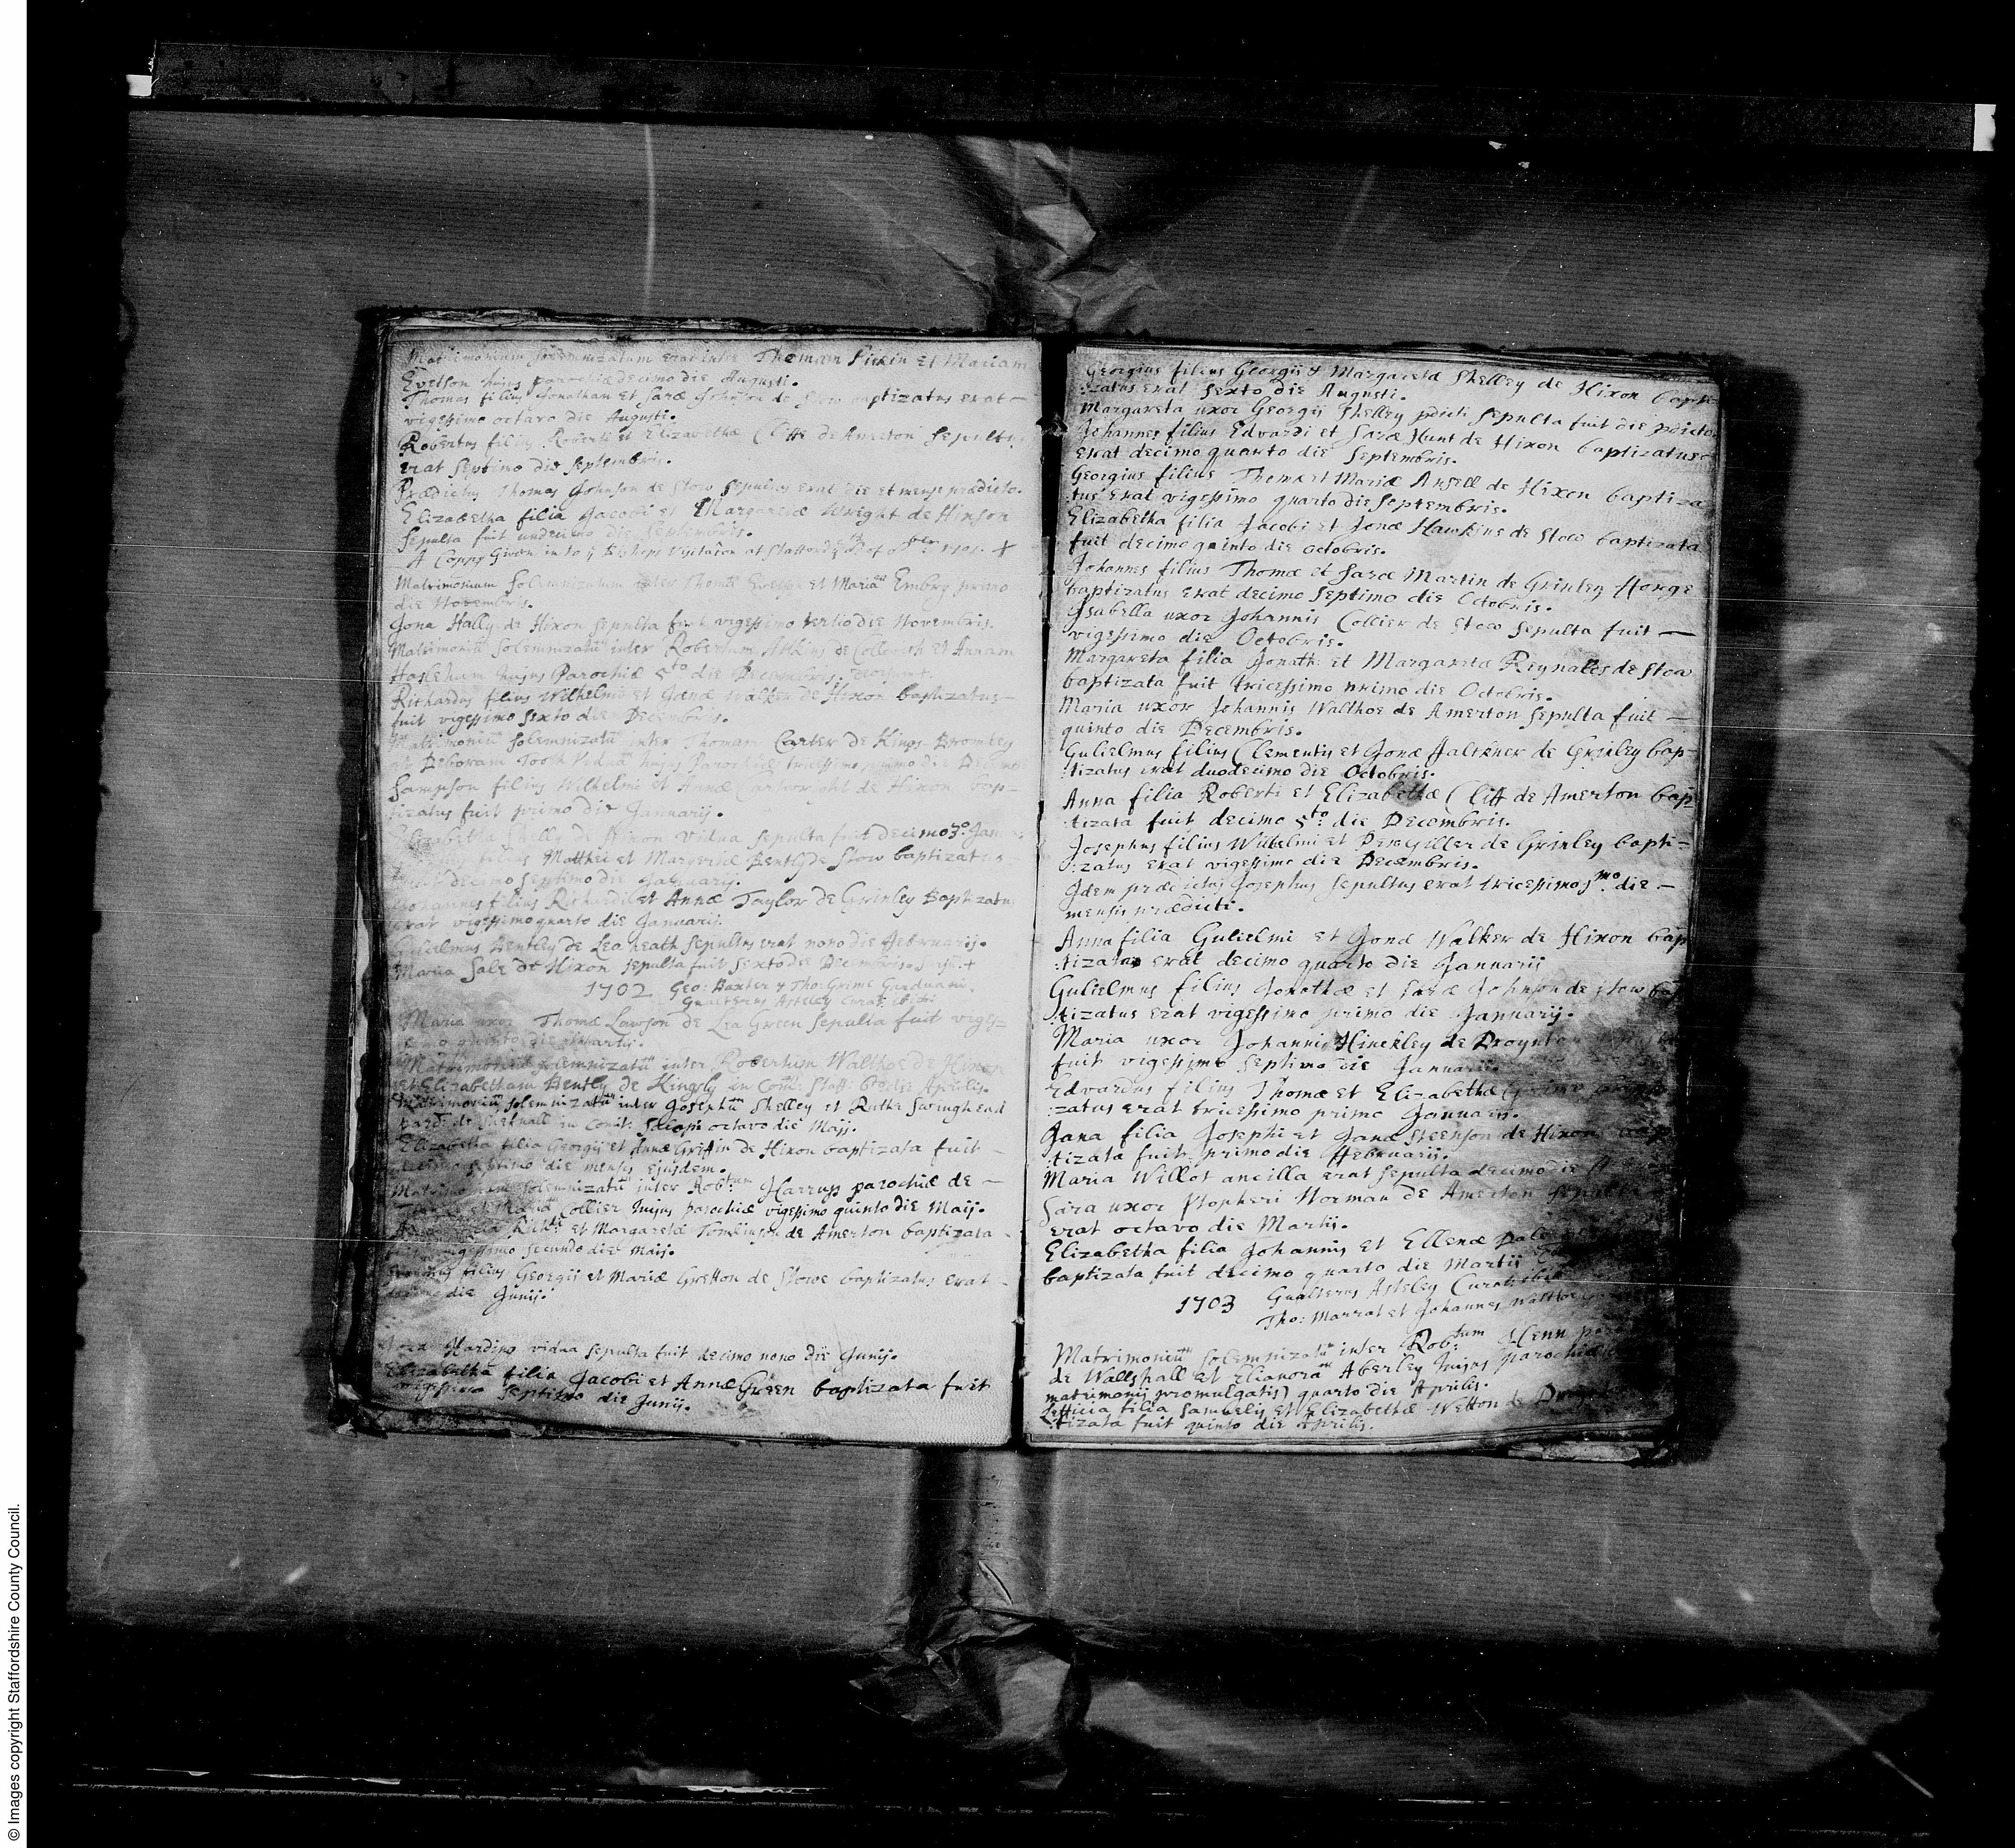 Matrimonium solemnizatum erat inter Thomam Pickin et Mariam
Evetson hujus parochiæ decimo die Augusti.
Thomas filius Jonathan et Saræ Johnson de Stow baptizatus erat –
vigessimo octavo die Augusti.
Robertus filius Roberti et Elizabethæ Cliffe de Amerton sepultus
erat septimo die Septembris.
Prædictus Thomas Johnson de Stow sepultus erat die et mense prædicto.
Elizabetha filia Jacobi et Margaretæ Wright de Hixson
sepulta fuit undecimo die Septembris.
A Coppy Given in to ye Bishops Visitacon at Stafford ye of 8ber 1701. +
Matrimonium solemnizatum inter Thomā et Mariam Embry primo
die Novembris.
Jona Hally de Hixon sepulta fuit vigessimo tertio die Novembris.
Matrimoniū solemnizatū inter Robertum Atkins de Collwich et Annam
hujus Parochiæ 5to die Decembris
Richardus filius Wilhelmi et Janæ Walker de Hixon baptizatus –
fuit vigessimo sexto die Decembris.
Matrimoniū solemnizatū inter Thomam Carter de Kings Bromley
et Deboram Tooth hujus Parochiæ tricessimo primo die
Sampson filius Wilhelmi et Annæ Cartwright de Hixon bap–
tizatus fuit primo die Januarij.
Elizabetha Shelly de Hixon vidua sepulta fuit decimo 3o.
filius Matthei et Margeriæ Bently de Stow baptizatus
erat decimo septimo die Januarij.
Johannes filius Richardi et Annæ Taylor de Grinley Baptizatus
erat vigessimo quarto die Januarij.
Gulielmus Bentley de Lea heath sepultus erat nono die Februarij.
Maria Sale de Hixon sepulta fuit sexto die Decembris. +
1702 Geo: Baxter & Tho: Grime Gardiani.
Gualterus Asteley Curat: ibid:
Maria uxor Thomæ Lawson de Lea Green sepulta fuit viges–
simo quinto die Martij.
Matrimoniū solemnizatū inter Robertum Walthoe de Hixon
et Elizabetham Bently de Kingsly in Comt: Staff: die Aprilis.
Matrimoniū solemnizatū inter Josephū Shelley et Ruthe Swinghead
de Shefnall in Comt: Salop: octavo die Maij.
Elizabetha filia Georgij et Annæ Griffin de Hixon baptizata fuit –
decimo septimo die mensis ejusdem.
Matrimonium solemnizatū inter Robtum Harruss parochiæ de –
et Mariā Collier hujus parochiæ vigessimo quinto die Maij.
filia Richdi et Margaretæ Tomlinson de Amerton baptizata –
vigessimo secundo die Maij.
filius Georgij et Mariæ Gretton de Stowe baptizatus erat –
die Junij.
Harding vidua sepulta fuit decimo nono die Junij.
Elizabetha filia Jacobi et Annæ Green baptizata fuit
vigessimo septimo die Junij.
Georgius filius Georgij & Margaretæ Shelley de Hixon bapti–
:zatus erat sexto die Augusti.
Margareta uxor Georgij Shelley pdicti sepulta fuit die pdicto.
Johannes filius Edvardi et Saræ Hunt de Hixon baptizatus –
erat decimo quarto die Septembris.
Georgius filius Thomæ et Mariæ Ansell de Hixon baptiza
:tus erat vigessimo quarto die Septembris.
Elizabetha filia Jacobi et Jonæ Hawkins de Stow baptizata
fuit decimo quinto die Octobris.
Johannes filius Thomæ et Saræ Martin de Grinley fforge
baptizatus erat decimo septimo die Octobris.
Isabella uxor Johannis Collier de Stow sepulta fuit –
vigessimo die Octobris.
Margareta filia Jonath: et Margaretæ Reynalds de Stow
baptizata fuit tricessimo primo die Octobris.
Maria uxor Johannis Walthoe de Amerton sepulta fuit –
quinto die Decembris.
Gulielmus filius Clementis et Jonæ ffalkner de Grinley bap–
:tizatus erat duodecimo die Octobris.
Anna filia Roberti et Elizabethæ Cliff de Amerton bap–
:tizata fuit decimo 5to: die Decembris.
Josephus filius Wilhelmi et Giller de Grinley bapti–
:zatus erat vigessimo die Decembris.
Idem prædictus Josephus sepultus erat tricessimo jmo: die –
mensis prædicti.
Anna filia Gulielmi et Jonæ Walker de Hixon bap
:tizatus erat decimo quarto die Januarij
Gulielmus filius Jonathæ et Saræ Johnson de Stow bap
:tizatus erat vigessimo primo die Januarij.
Maria uxor Johannis Hinckley de Drointon
fuit vigessimo septimo die Januarij.
Edvardus filius Thomæ et Elizabethæ
:zatus erat tricessimo primo Januarij.
Jana filia Josephi et Janæ Steenson de Hixon
:tizata fuit primo die ffebruarij.
Maria Willot ancilla erat sepulta decimo die
Sara uxor Xtopheri Norman de Amerton sepulta
erat octavo die Martij.
Elizabetha filia Johannis et Ellenæ
baptizata fuit decimo quarto die Martij
1703 Gualterus Asteley Curat: ibid
Tho: Marrat et Johannes Walthoe
Matrimoniū solemnizatū inter Robtum: Henn
de Wallshall et Elianora Aberley hujus parochiæ
matrimonij promulgatis) quarto die Aprilis.
Letticia filia Samuelis et Elizabethæ Wetton de
:tizata fuit quinto die Aprilis.
© Images copyright Staffordshire County Council.